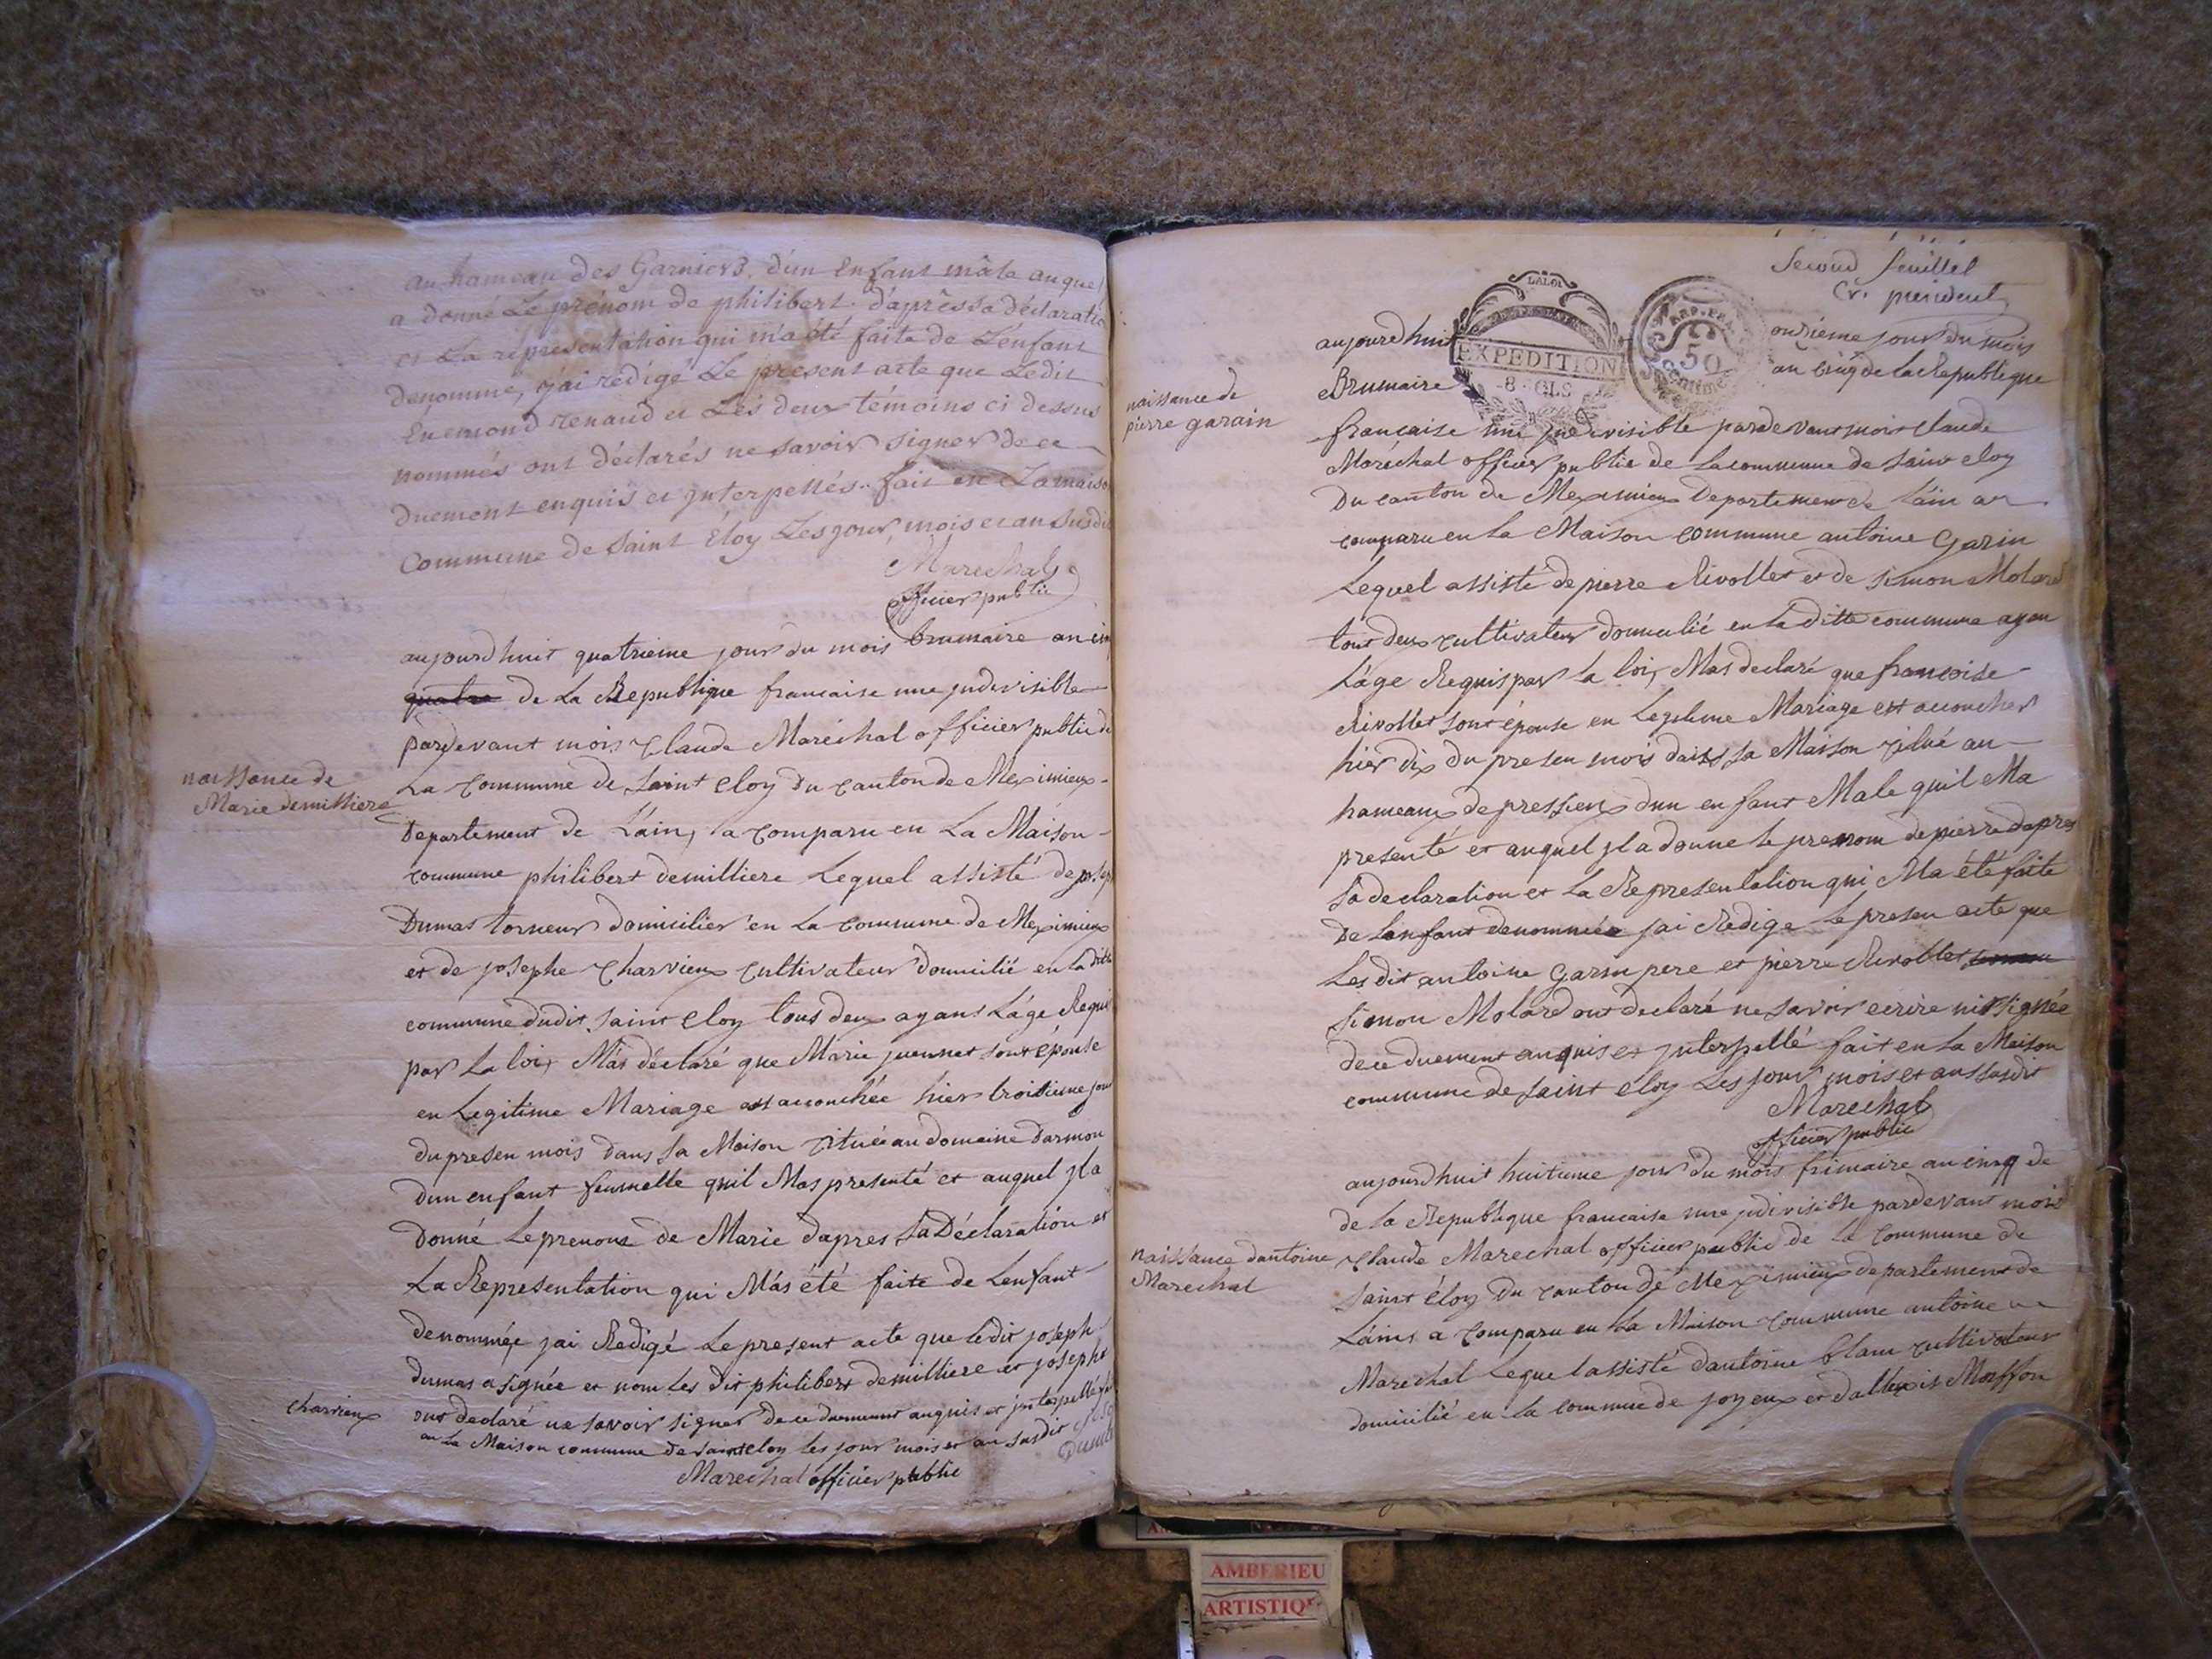 au hameau des Garniers, d'un Enfant mâle auquel
a donné Le prénom de philibert d'après sa déclaratio
et La représentation qui m'a été faite de L'enfant
denommé, j'ai redigé Le present acte que Ledit
Enemond renaud et Les deux témoins ci dessus
nommés ont déclarés ne savoir signer de ce
duement enquis et Interpellés. fait en La maiso
Commune de Saint Éloy Les jour, mois et an susdit
Marechal
officier public
aujourdhuit quatrieme jour du mois brumaire an cin
quatre de La Republique francaise une judivisible
pardevant mois Claude Maréchal officier public de
La Commune de Saint Eloy du canton de Meximieux
naissance de
Marie demilliere
Departement de L'ain, a comparu en La Maison
commune philibert demilliere Lequel assisté de josep
Dumas torneur domicilier en La commune de Meximieux
et de josephe Charvieux cultivateur domicilié en la ditte
commune dudit Saint Eloy tous deux ayans L'age Requi
par La loix M'as déclaré que Marie juennet sont épouse
en Legitime Mariage est accouchée hier troisieme jour
du presen mois dans sa Maison cituée au domaine Darmon
dun enfant femelle quil Mas presenté et auquel jl a
donné Le prenom de Marie dapres sa Déclaration et
La Representation qui M'as été faite de Lenfant
denommée jai Redigé Le present acte que ledit joseph
dumas a signée et nom les dit philibert demilliere et josephe
charvieux
ont declaré ne savoir signer de ce duement anquis et jnterpellé fai
en La Maison commune de Saint eloy les jour mois et an susdit
Marechal officier public
Second feuillet
Cr. president
aujourdhuit onzieme jour du mois
LA LOI
EXPEDITION
REP. FRA.
50
Centime
Brumaire an cinq de La Republique
naissance de
pierre garain
francaise une judivisible pardevant mois Claude
Maréchal officier public de La commune de Saint eloy
Du canton de Meximieux Departement de L'ain a
comparu en La Maison commune antoine Garin
Lequel assisté de pierre Rivollet et de Simon Molard
tous deux cultivateur domicilié en La ditte commune ayan
L'age Requis par la loix, Mas declaré que francoise
Rivollet sont épouse en Legitime Mariage est accoucher
hier dix du presen mois dans sa Maison citué au
hameaux de pressieux dun enfant Male quil Ma
presenté et auquel jl a donne le prenom de pierre dapres
sa declaration et La Representation qui Ma été faite
De Lenfant denommée jai Redige Le presen acte que
Les dit antoine Garin pere et pierre Rivollet
Simon Molard ont declaré ne savoir ecrire nit signée
de ce duement anquis et jnterpellé fait en La Maison
commune de Saint eloy Les jour mois et an susdit
Marechal
officier public
aujourdhuit huitieme jour du mois frimaire an cinq de
de la Republique francaise une judivisible pardevant mois
naissance dantoine
Marechal
Claude Marechal officier public de La Commune de
Saint éloy du canton de Meximieux departement de
L'ain, a comparu en La Maison commune antoine
Marechal Lequel assisté dantoine blanc cultivateur
domicilié en La commune de joyeux et dallexis Moiffon
AMBERIEU
ARTISTIQ